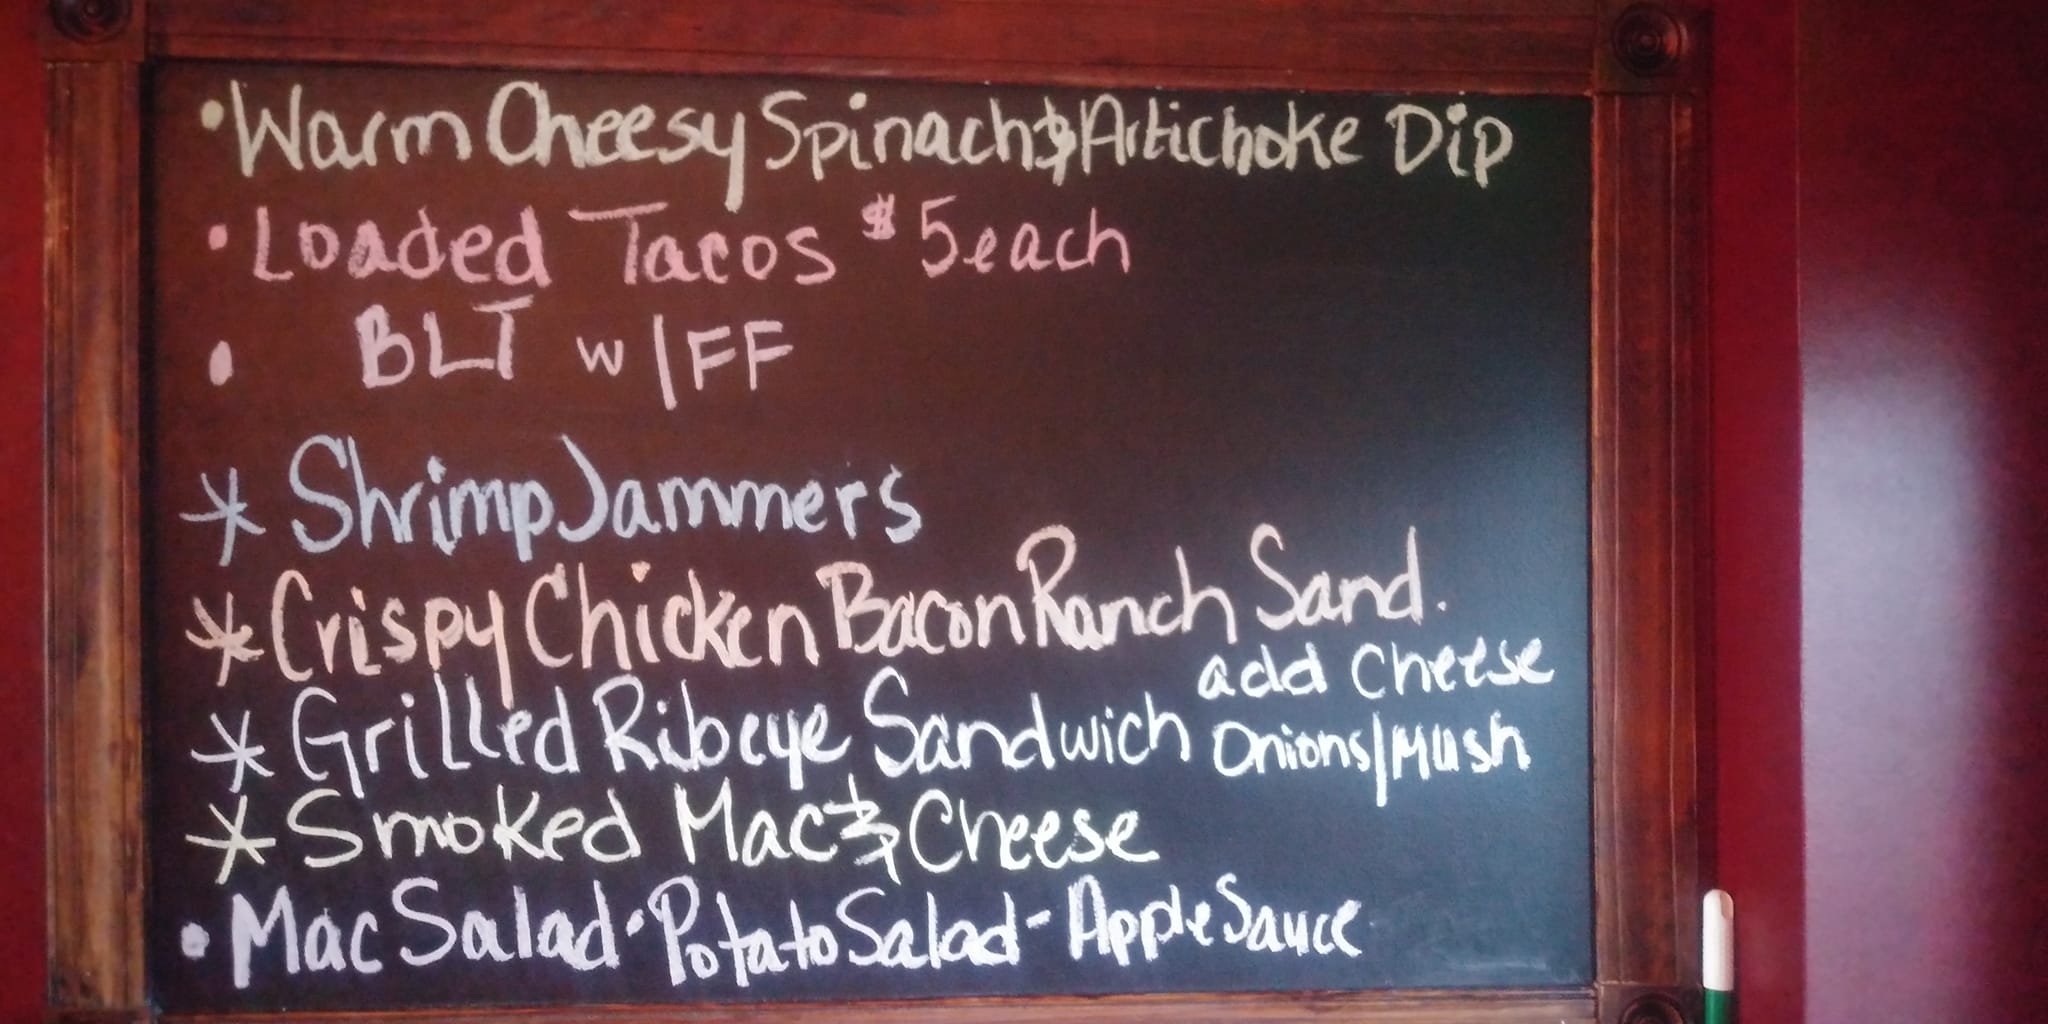 • Warm Cheesy Spinach & Artichoke Dip
• Loaded Tacos $5 each
• BLT w/FF
* Shrimp Jammers
* Crispy Chicken Bacon Ranch Sand.
* Grilled Ribeye Sandwich add Cheese
Onions/Mush
* Smoked Mac & Cheese
• Mac Salad • Potato Salad - Apple Sauce